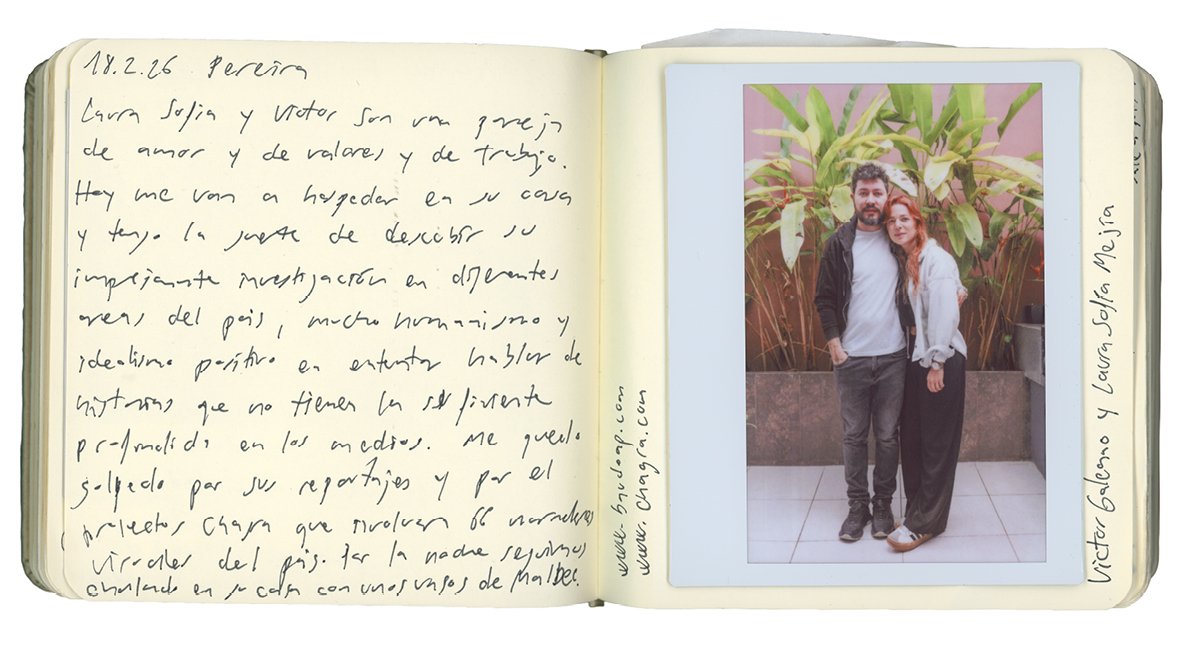 18.2.26 Pereira
Laura Sofia y Victor son una pareja
de amor y de valores y de trabajo.
Hoy me van a hospedar en su casa
y tengo la suerte de descobrir su
impejonante investigación en diferentes
areas del pais, mucho humanismo y
idealismo positivo en intentar hablar de
historias que no tienen la suficiente
profondidad en los medios. Me quedo
golpedo por sus reportajes y por el
proiectos Chagra que involucra 66 narradores
virales del pais. Por la noche seguimos
charlando en su casa con unos vasos de Malbec.
www.baudoap.com
www.chagra.com
Victor Galeano y Laura Sofía Mejía